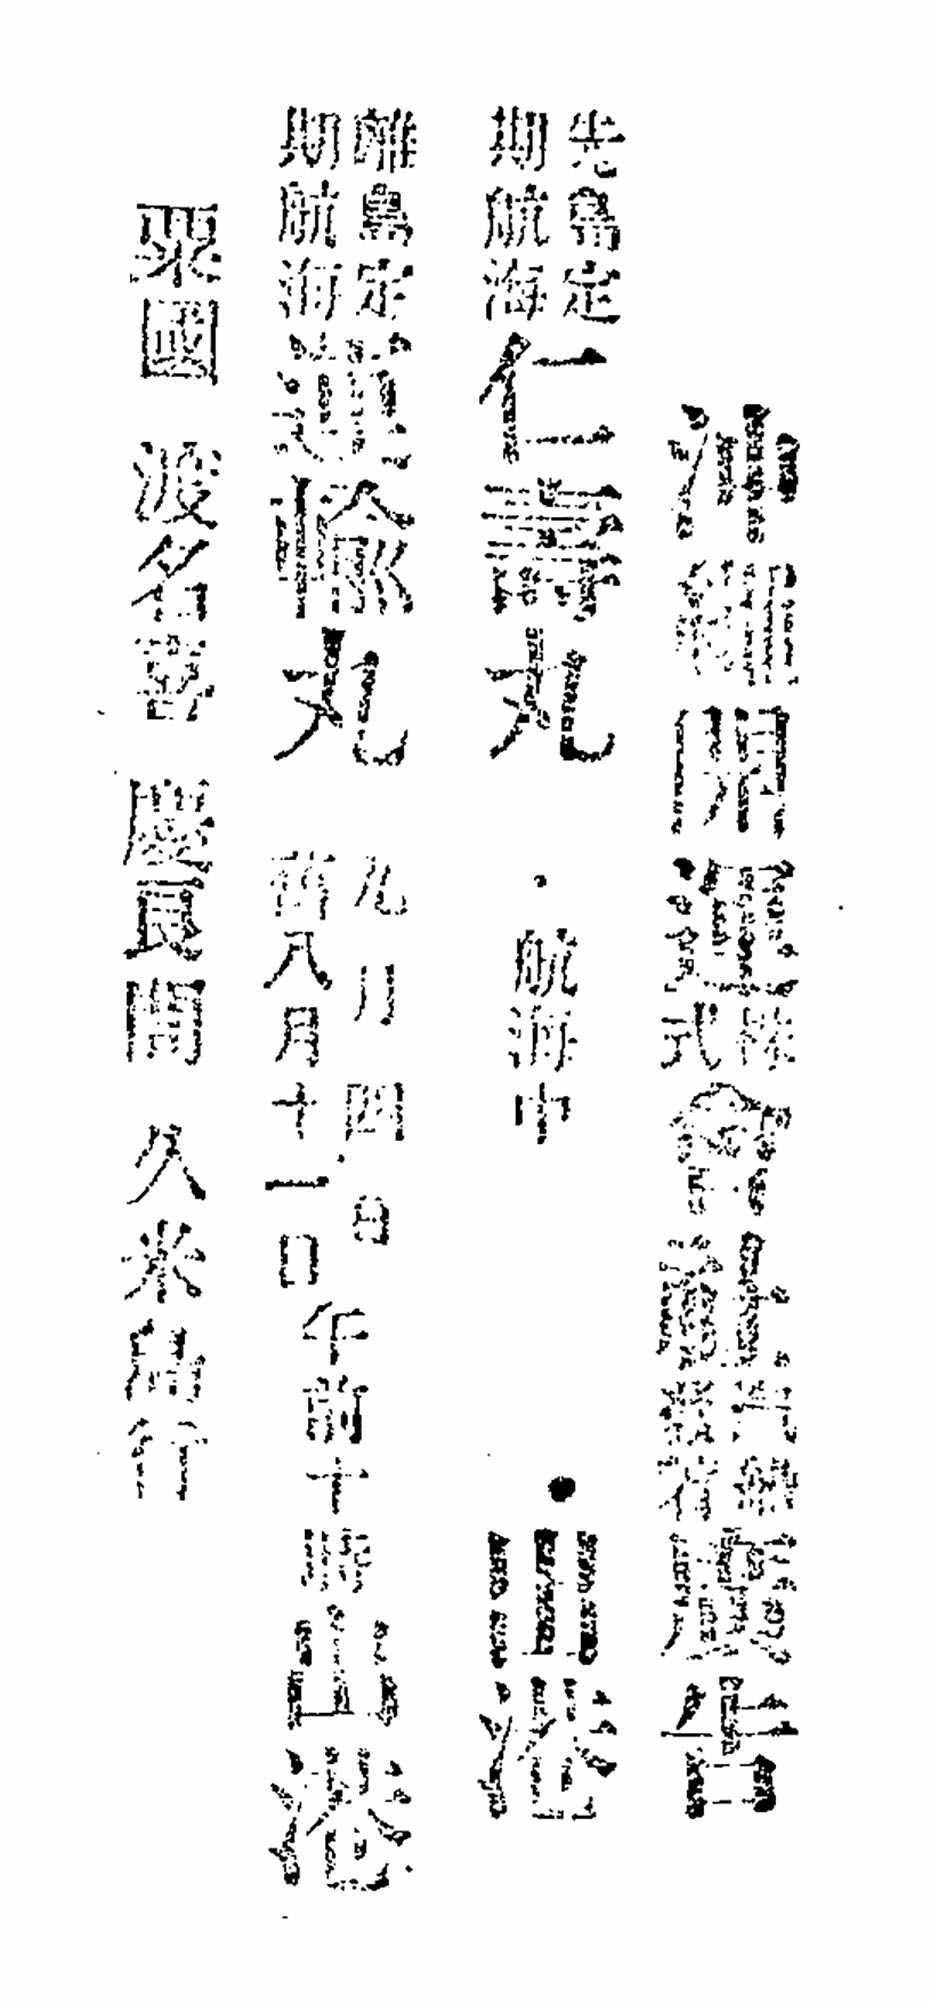 沖繩開運株式會社滊船出港廣告
先島定期航海 仁壽丸 航海中 出港
離島定期航海 運輸丸 九月四日 舊八月十一日 午前十時出港
粟國 渡名喜 慶良間 久米島行